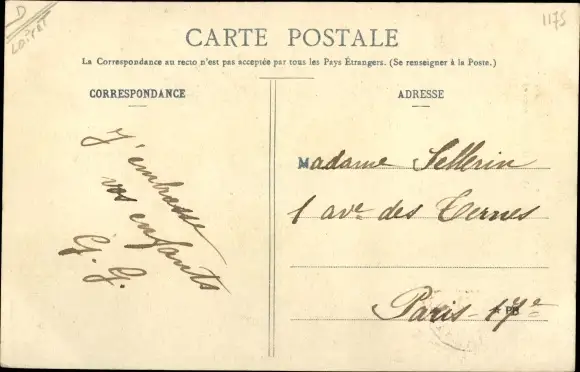 D
LOIRET
1175
CARTE POSTALE
La Correspondance au recto n'est pas acceptée par tous les Pays Étrangers. (Se renseigner à la Poste.)
CORRESPONDANCE
J'embrasse
vos enfants
G. G.
ADRESSE
Madame Sellerin
1 ave des Ternes
Paris - 17e